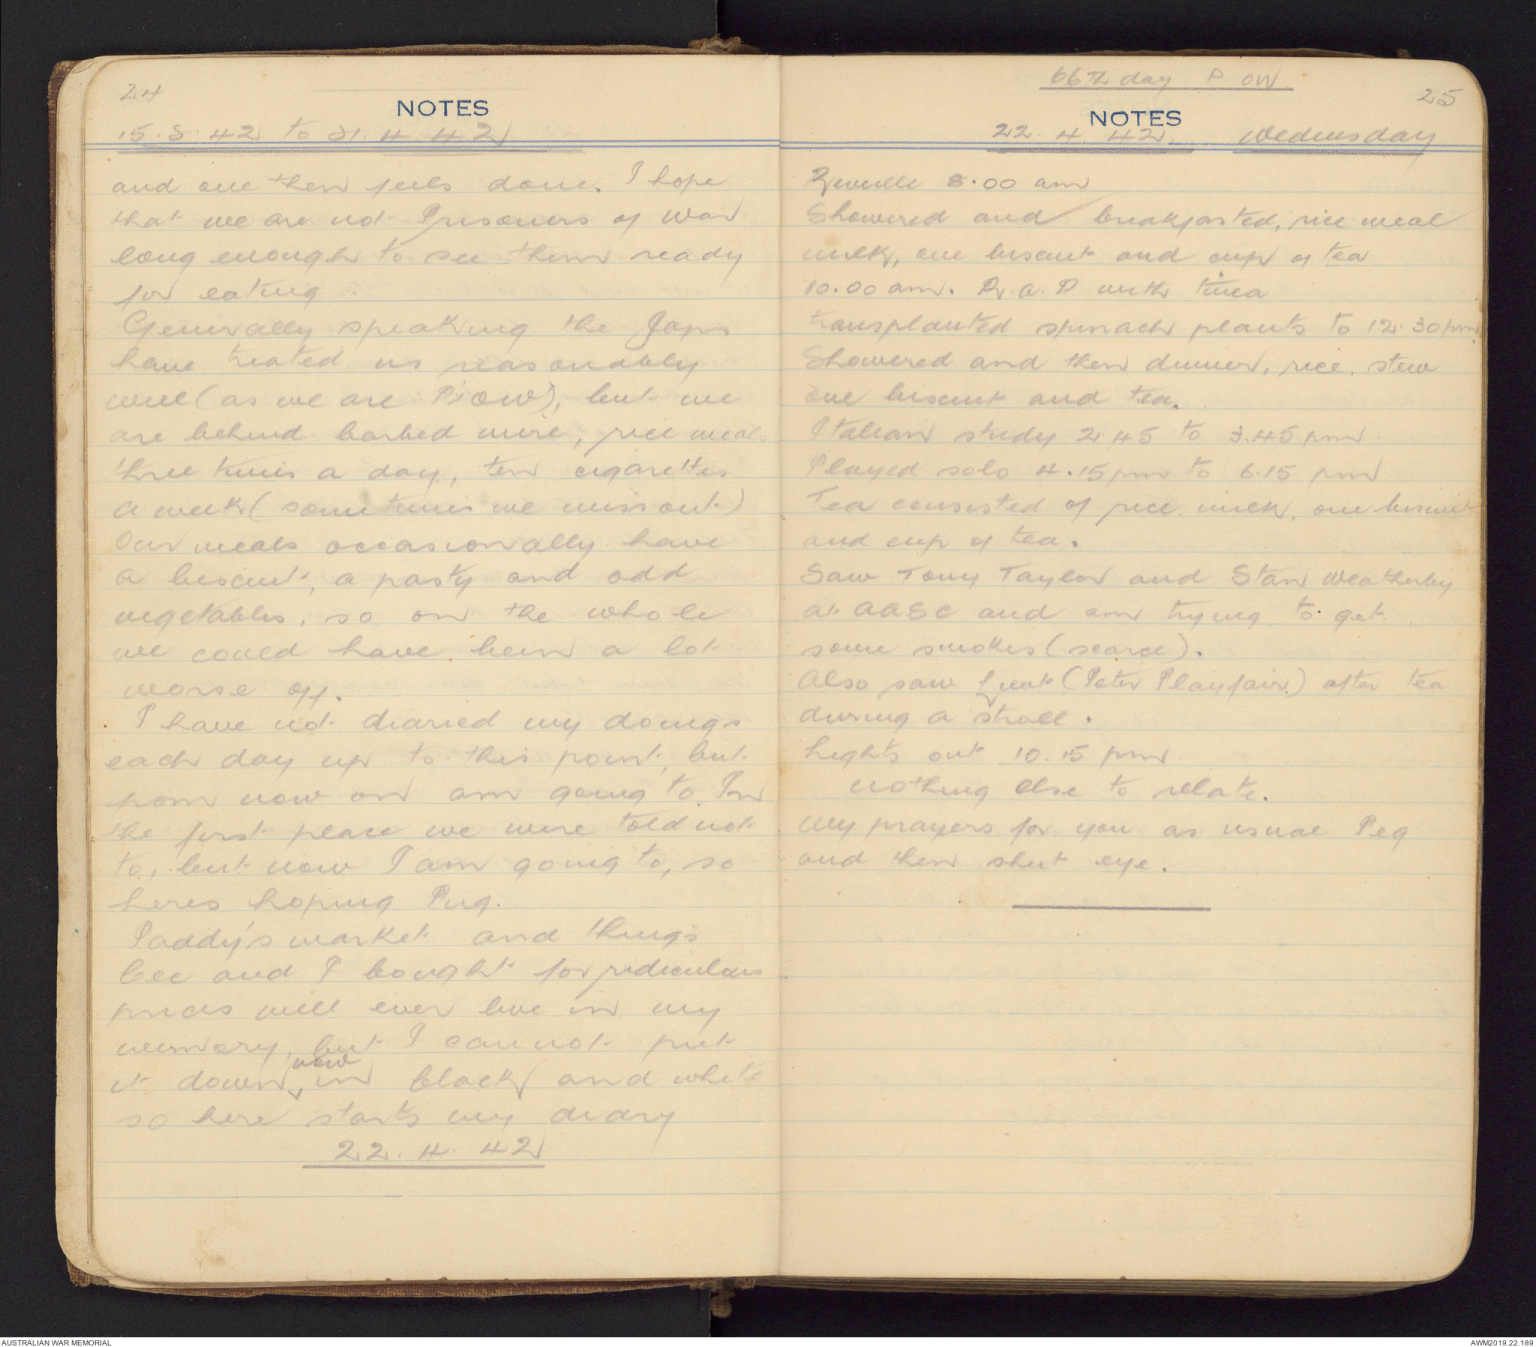 24
NOTES
15.3.42 to 21.4.42
and one then feels done. I hope
that we are not Prisoners of War
long enough to see them ready
for eating.
Generally speaking the Japs
have treated us reasonably
well (as we are P's OW), but we
are behind barbed wire, rice meals
three times a day, ten cigarettes
a week (sometimes we miss out)
Our meals occasionally have
a biscuit, a pasty and odd
vegetables, so on the whole
we could have been a lot
worse off.
I have not diaried my doings
each day up to this point, but
from now on am going to. In
the first place we were told not
to, but now I am going to, so
heres hoping Peg.
Paddy's market and things
Cec and I bought for ridiculous
prices will ever live in my
memory, but I cannot put
now
it down in black and white
so here starts my diary
22.4.42
66th day P OW
25
NOTES
22.4.42. Wednesday
Reveille 8.00 am
Showered and breakfasted, rice meal
milk, one biscuit and cup of tea
10.00 am. R.a.P with tinea
transplanted spinach plants to 12.30pm
Showered and then dinner, rice, stew
one biscuit and tea.
Italian study 2.45 to 3.45 pm
Played solo 4.15pm to 6.15 pm
Tea consisted of rice, milk, one biscuit
and cup of tea.
Saw Tony Taylor and Stan Weatherby
at AASC and am trying to get
some smokes (scarce).
Also saw Lieut (Peter Playfair) after tea
during a stroll.
Lights out 10.15 pm
nothing else to relate.
My prayers for you as usual Peg
and then shut eye.
AUSTRALIAN WAR MEMORIAL
AWM2019.22.189